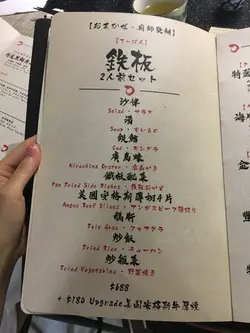 【おまかせ・廚師發辦】
【てっぱん】
鉄板
2人前セット
沙律
Salad・サラダ
湯
Soup・すいもの
銀鱈
Cod・ギンダラ
廣島蠔
Hiroshima Oyster・広島かき
鐵板配菜
Pan Fried Side Dishes・鉄板おかず
美國安格斯薄切4片
Angus Beef Slices・アンガスビーフ薄切り
鵝肝
Foie Gras・フォアグラ
炒飯
Fried Rice・チャーハン
炒雜菜
Fried Vegetables・野菜焼き
$688
+ $180 Upgrade美国安格斯牛厚燒